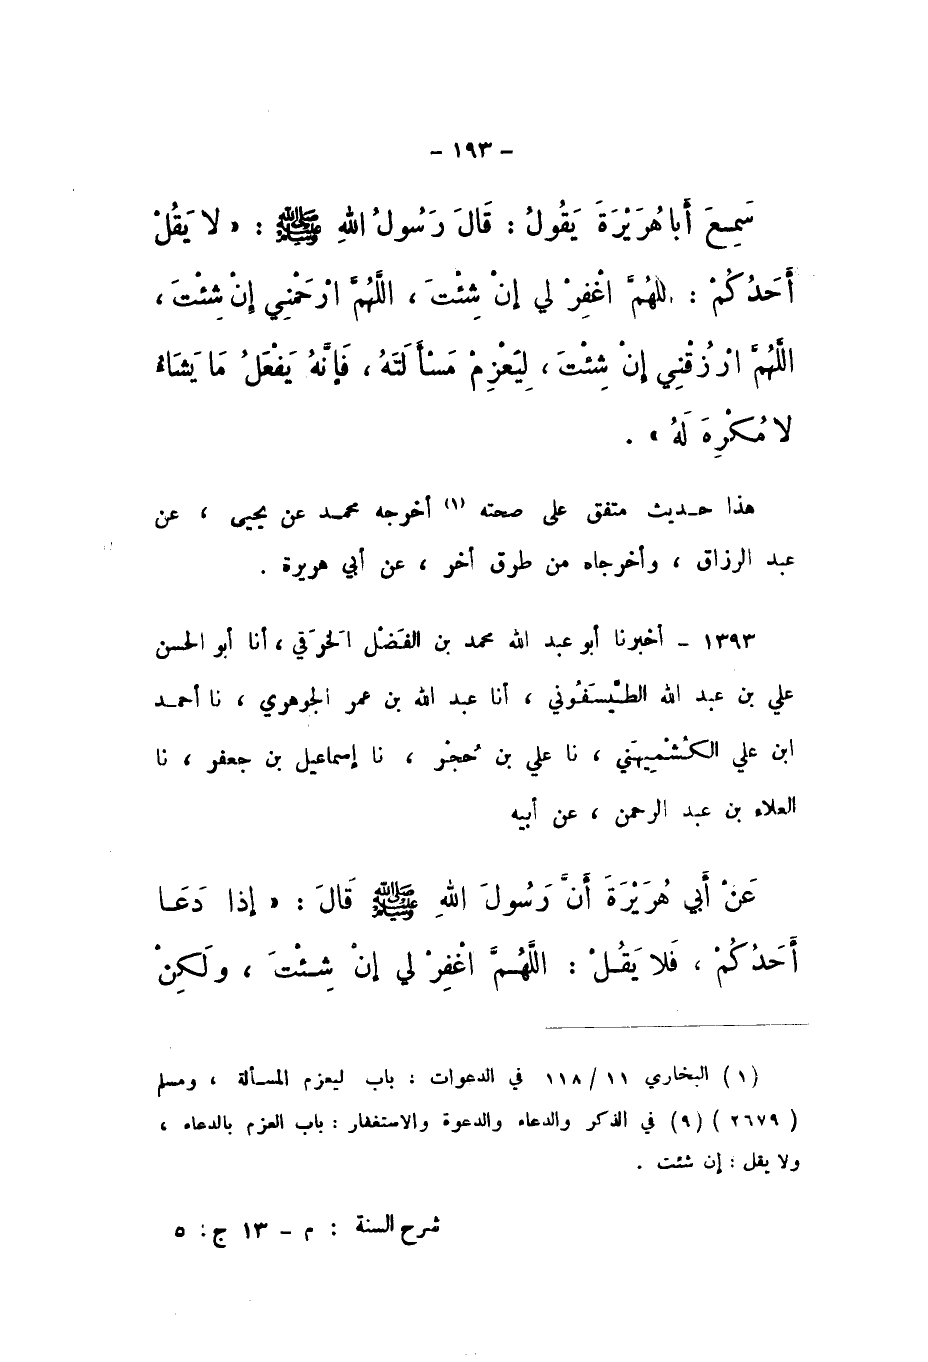 - ١٩٣ -
سَمِعَ أَبا هُرَيْرَةَ يَقُولُ : قَالَ رَسُولُ اللهِ ﷺ : « لا يَقُلْ
أَحَدُكُمْ : اللهُمَّ اغْفِرْ لي إنْ شِئْتَ ، اللَّهُمَّ ارْحَمْنِي إنْ شِئْتَ ،
اللَّهُمَّ ارْزُقْنِي إنْ شِئْتَ ، لِيَعْزِمْ مَسْأَلَتَهُ ، فَإنَّهُ يَفْعَلُ مَا يَشَاءُ
لا مُكْرِهَ لَهُ » .
هذا حـديث متفق على صحته (١) أخرجه محمـد عن يحيى ، عن
عبد الرزاق ، وأخرجاه من طرق أخر ، عن أبي هريرة .
١٣٩٣ - أخبرنا أبو عبد الله محمد بن الفَضْل الَخرَقي ، أنا أبو الحسن
علي بن عبد الله الطَّيْسَفُوني ، أنا عبد الله بن عمر الجوهري ، نا أحمـد
ابن علي الكُشْمِيهَني ، نا علي بن حُجْر ، نا إسماعيل بن جعفر ، نا
العلاء بن عبد الرحمن ، عن أبيه
عَنْ أَبي هُرَيْرَةَ أَنَّ رَسُولَ اللهِ ﷺ قَالَ : « إذا دَعَـا
أَحَدُكُمْ ، فَلا يَقُـلْ : اللَّهُـمَّ اغْفِرْ لي إنْ شِـئْتَ ، ولَكِنْ
(١) البخاري ١١/ ١١٨ في الدعوات : باب ليعزم المسـألة ، ومسلم
( ٢٦٧٩ ) (٩) في الذكر والدعاء والدعوة والاستغفار : باب العزم بالدعاء ،
ولا يقل : إن شئت .
شرح السنة : م - ١٣ ج: ٥